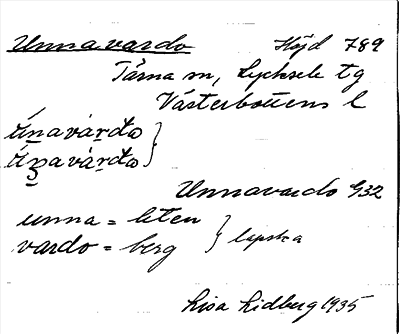 Unnavardo Höjd 789
Tärna sn, Lycksele tg
Västerbottens l
unna = liten
vardo = berg } lapska
Unnavardo G32
Lisa Lidberg 1935